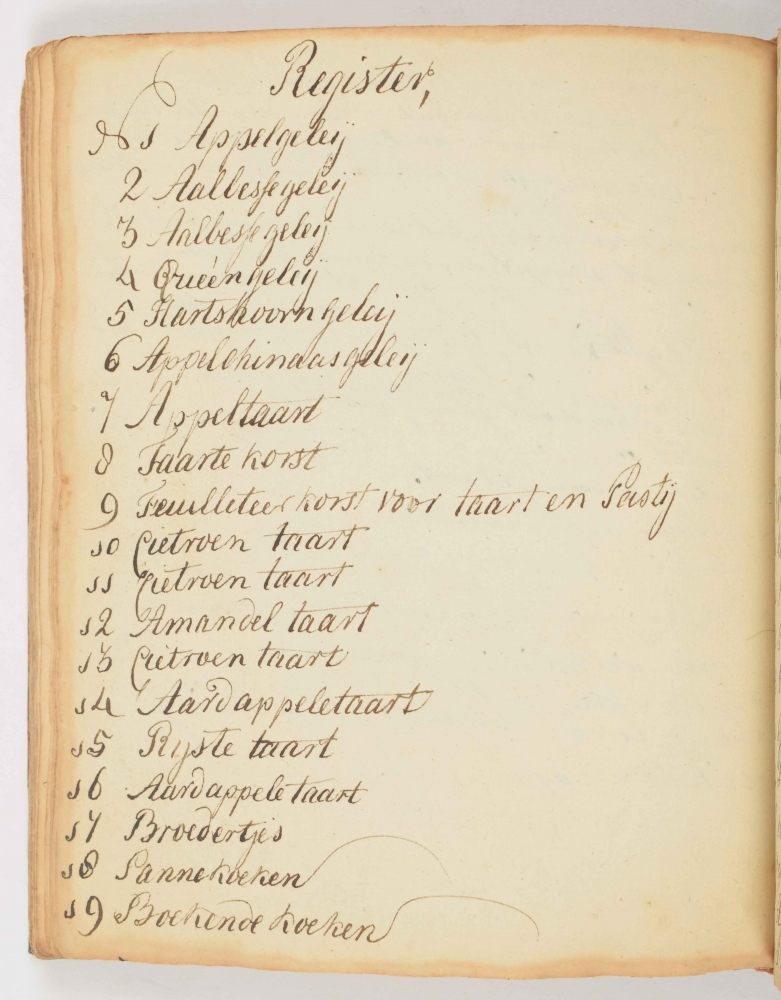 Register,
No 1 Appelgeleij
2 Aalbessegeleij
3 Aalbessegeleij
4 Queéngeleij
5 Hartshoorngeleij
6 Appelchinaasgeleij
7 Appeltaart
8 Taarte korst
9 Feuilleteer korst voor taart en Pastij
10 Cietroen taart
11 Cietroen taart
12 Amandel taart
13 Cietroen taart
14 Aardappeletaart
15 Ryste taart
16 Aardappele taart
17 Broedertjes
18 Pannekoeken
19 Boekende koeken